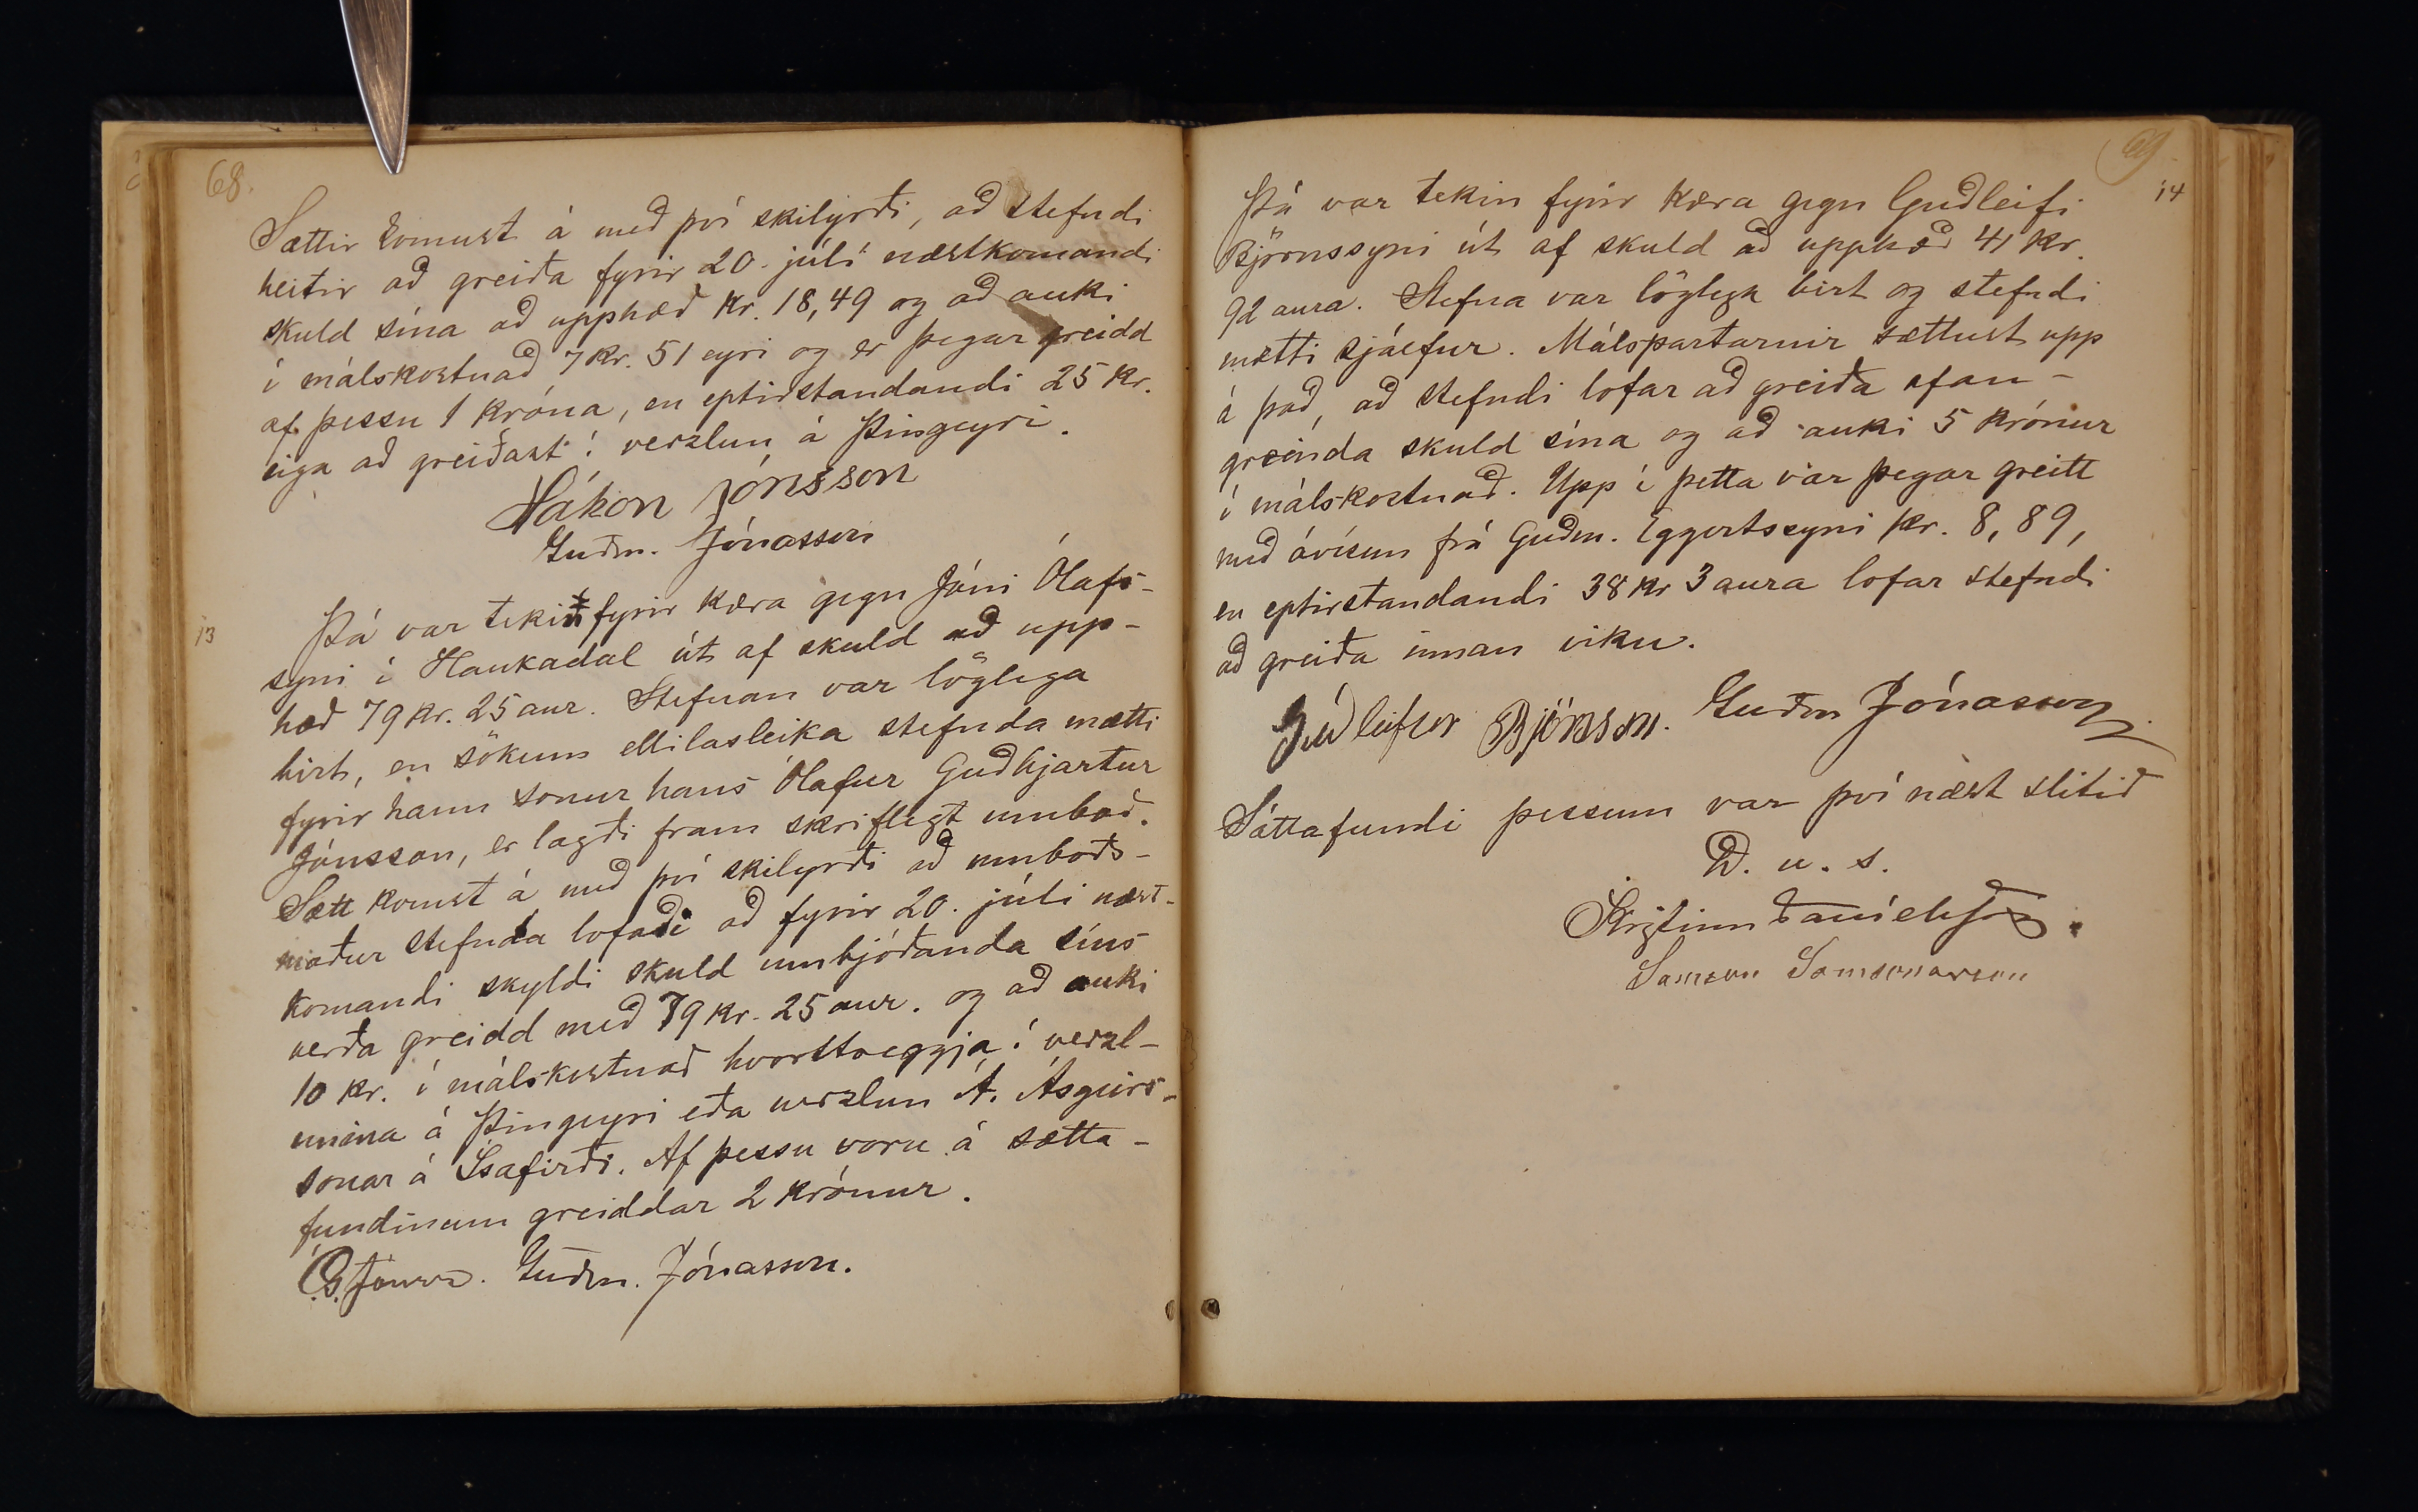 68.
Sættir komust á með því skilyrði, að stefndi
heitir að greiða fyrir 20. júlí næstkomandi
skuld sína að upphæð kr. 18,49 og að auki
í málskostnað 7 kr. 51 eyri og er þegar greidd
af þessu 1 króna, en eptirstandandi 25 kr.
eiga að greiðast í verzlun á Þingeyri.
Hákon Jónsson
Guðm. Jónasson
13
Þá var tekin fyrir kæra gegn Jóni Ólafs-
syni í Haukadal út af skuld að upp-
hæð 79 kr. 25 aur. Stefnan var löglega
birt, en sökum ellilasleika stefnda mætti
fyrir hann sonur hans Ólafur Guðbjartur
Jónsson, er lagði fram skriflegt umboð.
Sætt komst á með því skilyrði að umboðs-
maður stefnda lofaði að fyrir 20. júlí næst-
komandi skyldi skuld umbjóðanda síns
verða greidd með 79 kr. 25 aur. og að auki
10 kr. í málskostnað hvorttveggja í verzl-
unina á Þingeyri eða verzlun Á. Ásgeirs-
sonar á Ísafirði. Af þessu voru á sætta-
fundinum greiddar 2 krónur.
Ó.G. Jónsson. Guðm. Jónasson.
69.
14
Þá var tekin fyrir kæra gegn Guðleifi
Björnssyni út af skuld að upphæð 41 kr.
92 aura. Stefna var löglega birt og stefndi
mætti sjálfur. Málspartarnir sættust upp
á það, að stefndi lofar að greiða ofan-
greinda skuld sína og að auki 5 krónur
í málskostnað. Upp í þetta var þegar greitt
með ávísun frá Guðm. Eggertssyni kr. 8,89,
en eptirstandandi 38 kr 3 aura lofar stefndi
að greiða innan viku.
Guðleifur Björnsson. Guðm Jónasson
Sáttafundi þessum var því næst slitið
D. u. s.
Kristinn Daníelsson.
Samson Samsonarson